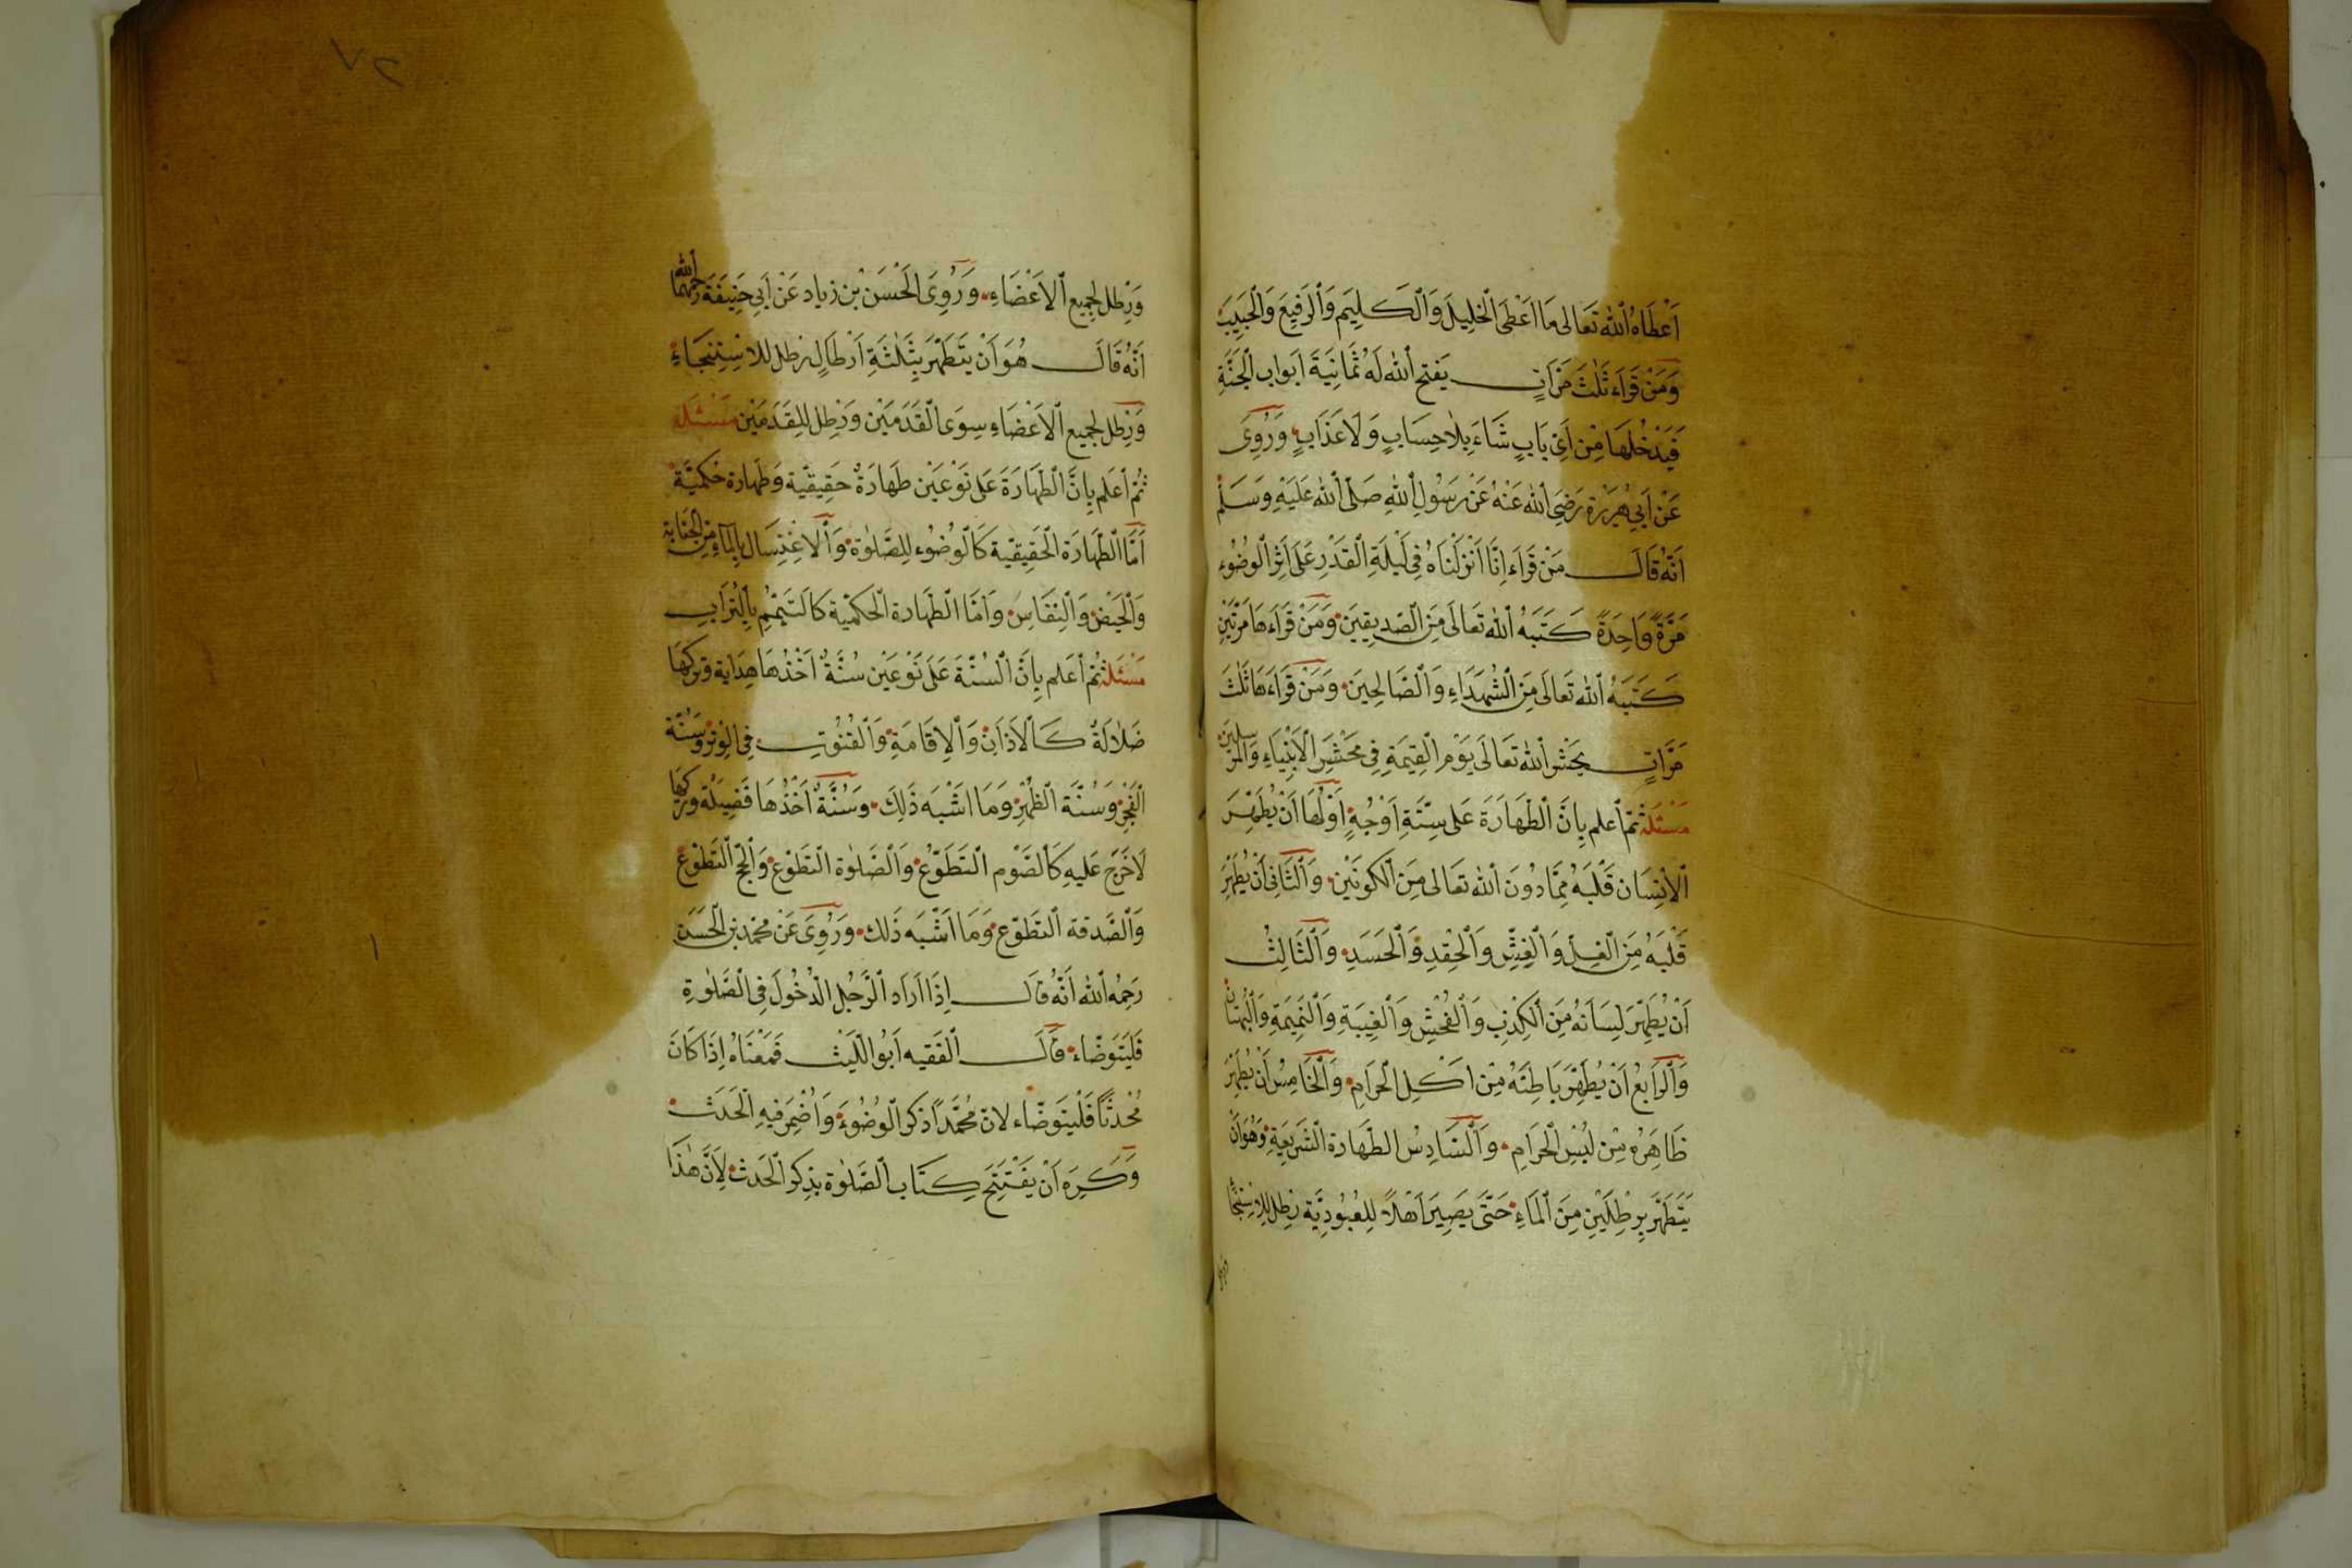 اَعْطَاهُ اللهُ تَعَالى مَا اَعْطَى الْخَلِيلَ وَالْكَلِيمَ وَالرَفِيعَ وَالْحَبِيبَ
وَمَنْ قَرَاَء ثَلٰثَ مَرَاتٍ يَفتح اللهُ لَهُ ثَمَانِيَةَ اَبَواب الْجَنَّةِ
فَيَدْخُلهَا مِنْ اَىِّ بَابٍ شَاءَ بِلاَ حِسَابٍ وَلاَ عَذَابٍ وَرُوِىَ
عَنْ اَبِى هُرَيْرَة رَضِىَ اللهُ عَنْهُ عَنْ رَسُولِ اللهِ صَلّى اللهُ عَلَيْهِ وَسَلَّمْ
اَنَّهُ قَالَ مَنْ قَرَاَء اِنَّا اَنْزَلْنَاهُ فِى لَيْلَةِ الْقَدْرِ عَلَى اَثِرِ الْوُضُوءِ
مَرَّةً وَاحِدَةً كَتَبَهُ اللهُ تَعَالَى مِنَ الصّدِيقِينَ وَمَنْ قَرَاَءهَا مَرَّتَيْنِ
كَتَبَهُ اللهُ تَعَالَى مِنَ الْشُهَدَاءِ وَالْصَّالِحِينَ وَمَنْ قَرَاَءهَا ثَلٰثَ
مَرَّاتٍ يَحْشر اللهُ تَعَالَى يَوْمِ الْقِيٰمَةِ فِى مَحْشَرِ الْاَنْبِيَاءِ وَالْمُرْسَلِينَ
مَسْئَلَة ثمّ اَعلم بِاَنَّ الْطَهَارَةَ عَلى سِتَّةِ اَوْجُهٍ اَوَّلُهَا اَنْ يُطَهِّرَ
الْاِنْسَان قَلْبَهُ مِمَّا دُونَ اللهُ تعَالى مِنَ الْكَونَيْن وَالثَّانِى اَنْ يُطَهِّرَ
قَلْبَهُ مِنَ الْغِلِّ وَالْغِشِّ وَالْحِقْدِ وَالْحَسَدِ وَالْثَالِثْ
اَنْ يُطَهِّرَ لِسَانَهُ مِنَ الْكِذْبِ وَالْفُحْشِ وَالْغِيبَةِ وَالْنَمِيمَةِ وَالْبُهْتَانْ
وَالْرَابِعُ اَنْ يُطَهِّرَ بَاطِنَهُ مِنْ اَكْلِ الْحَرَامِ وَالْخَامِسْ اَنْ يُطَهِّرَ
ظَاهِرُه مِنْ لَبْسِ الْحَرَامِ وَالْسَادِسُ الطَهَارة الْشَرِيعَةِ وَهُوَ اَنْ
يَتَطَهَّرَ بِرِطْلَيْنِ مِنَ الْمَاءِ حَتَّى يَصِيرَ اَهْلاً لِلْعُبُودِيَّة رِطل لِلاِسْتِنْجَا
ورطل
٢٧
وَرِطل لِجَمِيع الْاَعْضَاءِ وَرُوِىَ الْحَسَنْ بْن زياد عَنْ اَبِى حَنِيفَة رَحِمَهُمَا الله
اَنَّهُ قَالَ هُوَ اَنْ يَتَطَهَّرَ بِثَلٰثَةِ اَرْطَالٍ رطل للاسْتِنْجَاءِ
وَرِطل لجَمِيع الْاَعْضَاءِ سِوَى الْقَدَمَيْن وَرِطل للِقَدَمَيْن مَسْئَلة
ثمّ اَعلم بِاَنَّ الْطَهَارَةَ عَلى نَوْعَيْن طَهَارَةٌ حَقِيقيّة وَطَهَارة حُكْميَّة
اَمَّا الْطَهَارَة الْحَقِيقيّة كَالْوُضُوء لِلصَّلٰوة وَالْاغْتِسَال بِالْمَاءِ مِن الْجَنَابَة
وَالْحَيْضْ وَالْنِفَاسْ وَاَمّا الْطَهَارة الْحكميّة كَالتَيَمُّمِ بِالْتُرَابِ
مَسْئَلة ثمّ اَعلم بِاَنَّ الْسُنَّةَ عَلَى نَوْعَيْن سُنَّةٌ اَخْذُهَا هِدَاية وتركهَا
ضَلاَلَةٌ كَالْاَذَانْ وَالْاِقَامَةِ وَالْقُنُوتِ فِى الوِترْ وَسُنَّة
الْفَجْرِ وَسُنَّة الْظُهْرِ وَمَا اَشْبَهَ ذَلِكَ وَسُنَّةٌ اَخْذُهَا فَضِيلَة وَتركهَا
لاَ حَرَجَ عَليهِ كَالصَوْم التَطَوّعْ وَالْصَلٰوة التَطَوّعْ وَالْحجّ الْتَطَوْعْ
وَالْصَدقة الْتَطَوّعْ وَمَا اَشْبَه ذَلك وَرُوِىَ عَنْ محمّد بْن الْحَسَنِ
رَحِمُه اللهُ اَنَّهُ قَالَ اِذَا اَرَاد الْرَجُل الْدُخُولَ فِى الْصَّلٰوةِ
فَليَتَوَضّاء قَالَ الْفَقيه اَبُو اللَيْث فَمَعْنَاهُ اِذَا كَانَ
مُحْدثاً فَلْيَتَوَضّاء لانّ مُحَمَّداً ذكَر الْوُضُوءَ وَاُضْمِرَ فِيهِ الْحَدَث
وَكَرِهَ اَنْ يَفْتَتِحَ كِتَاب الْصَلٰوة بِذِكر الْحَدث لِاَنَّ هٰذَا